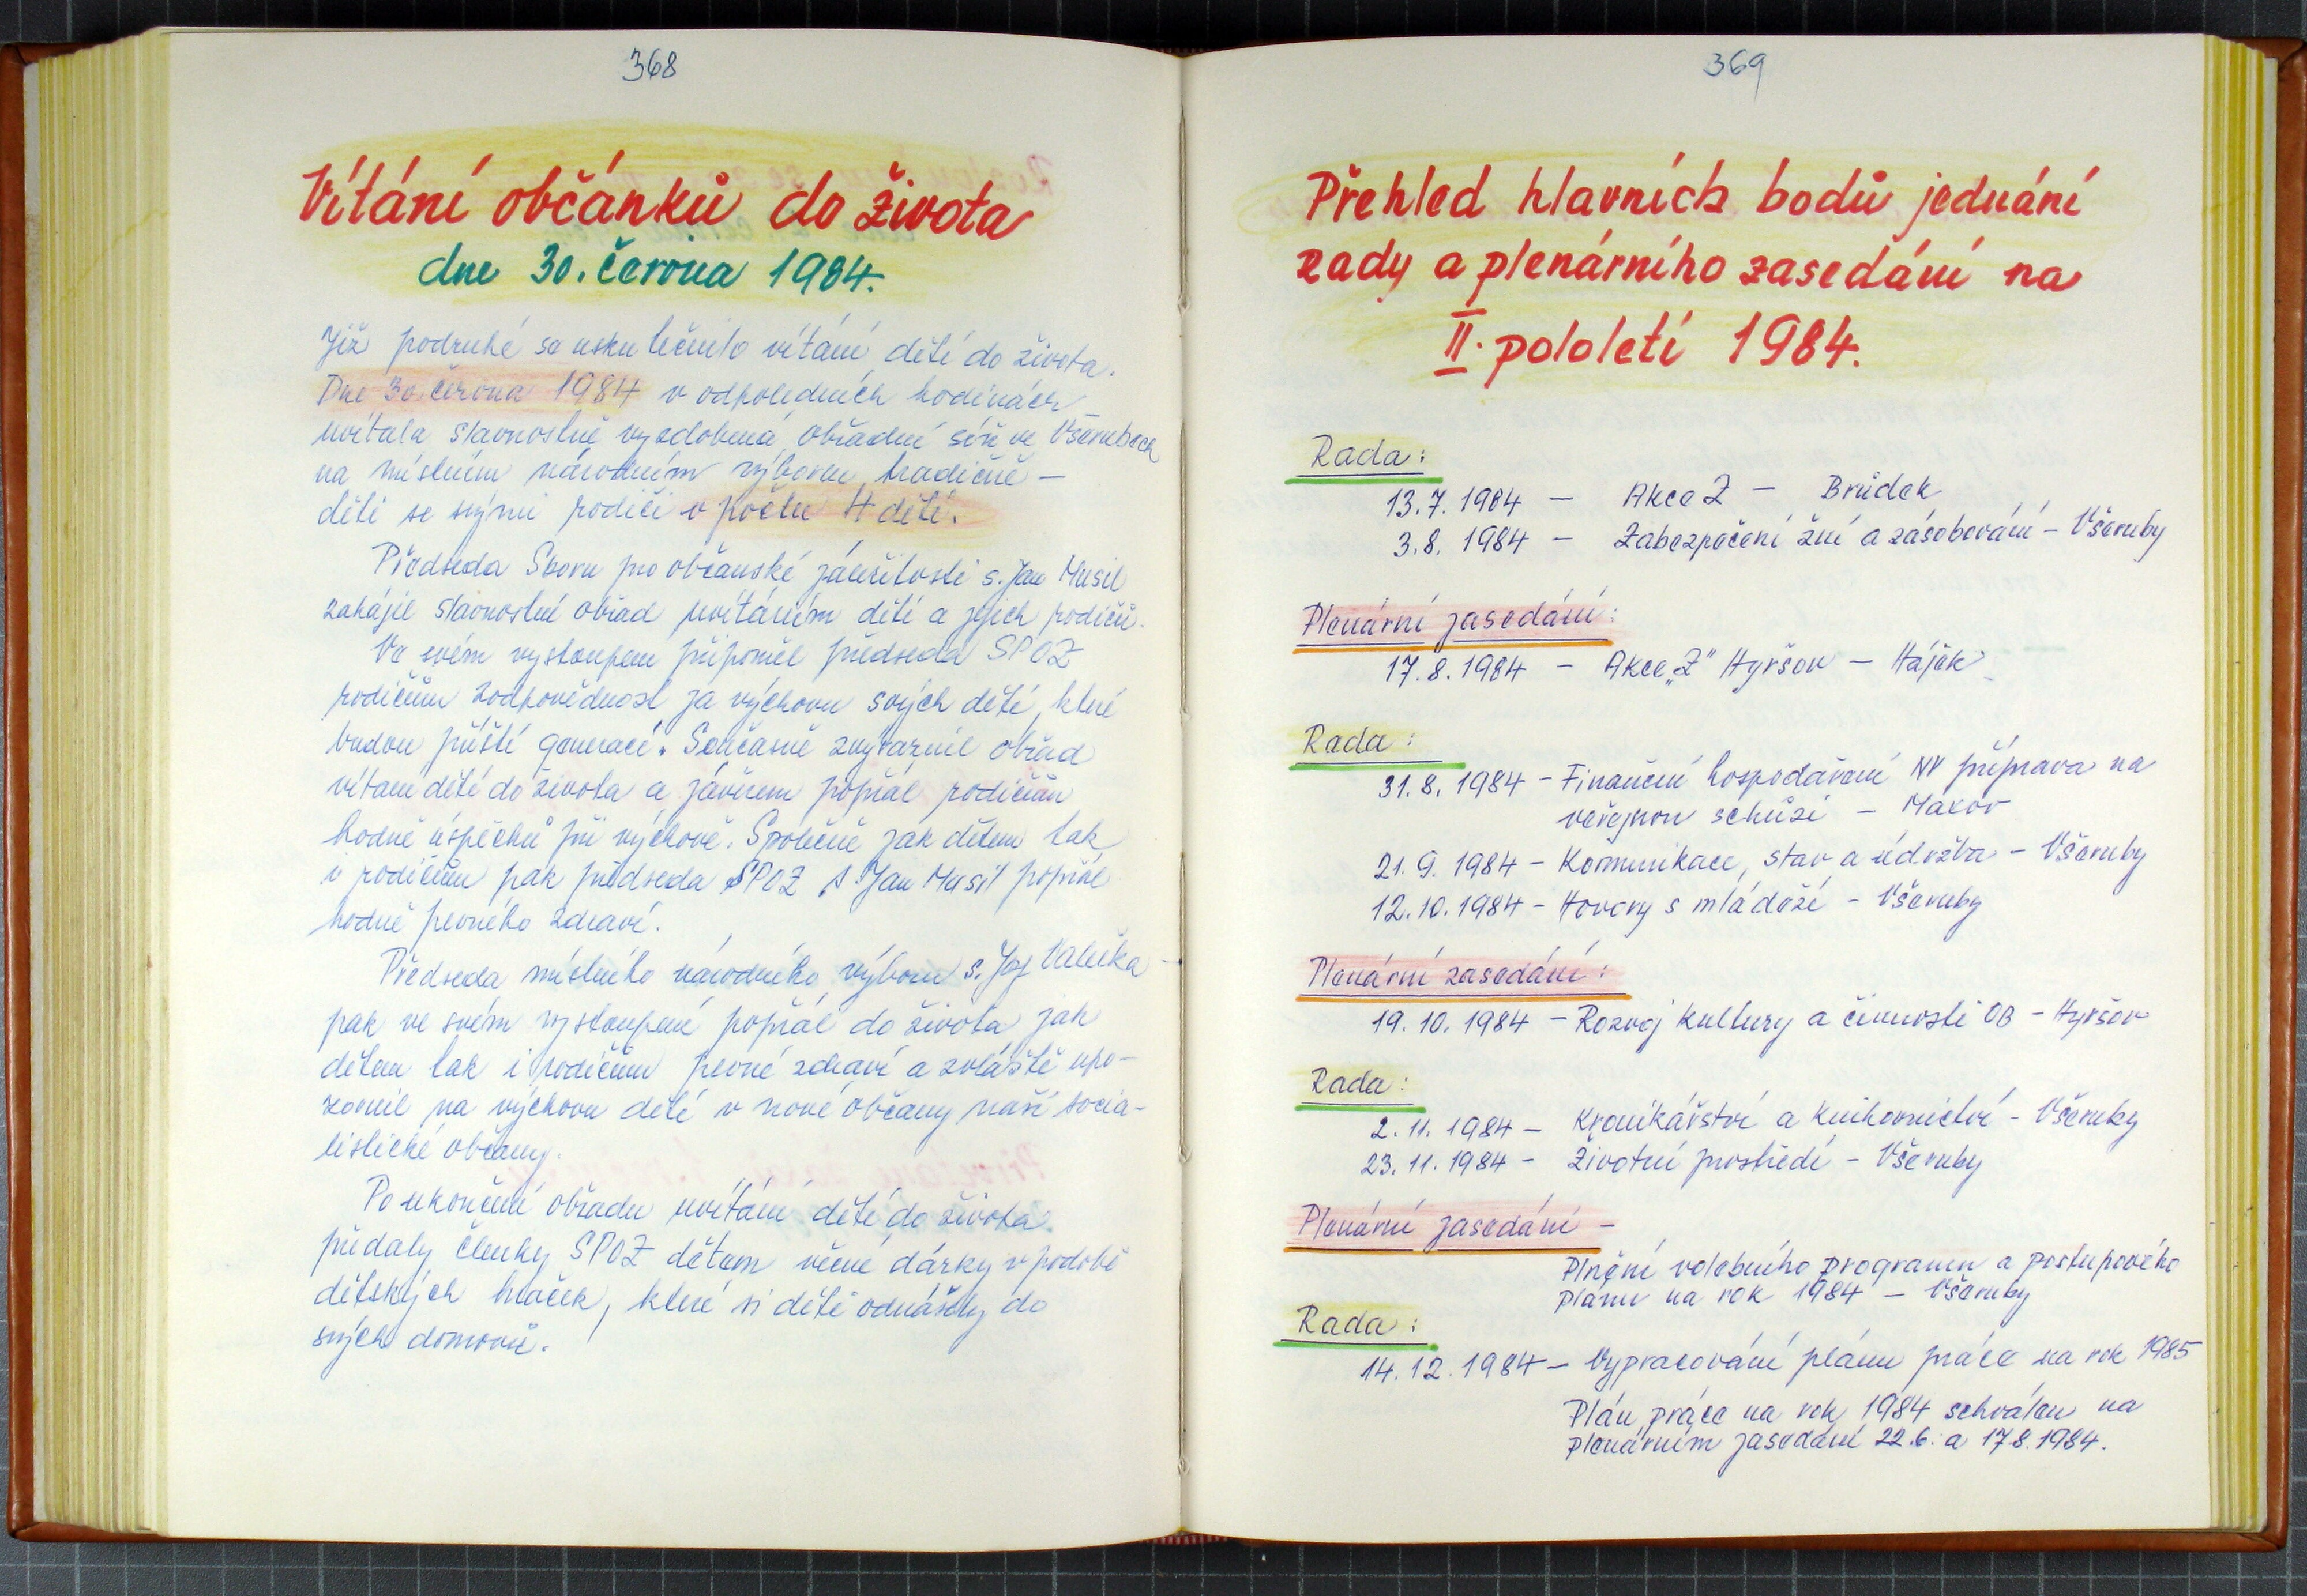 368
Vítání občánků do života
dne 30. června 1984.
Již podruhé se uskutečnilo vítání dětí do života.
Dne 30. června 1984 v odpoledních hodinách
uvítala slavnostně vyzdobená obřadní síň ve Všerubech
na místním národním výboru tradičně –
děti se svými rodiči v počtu 4 dětí.
Předseda Sboru pro občanské záležitosti s. Jan Musil
zahájil slavnostní obřad uvítáním dětí a jejich rodičů.
Ve svém vystoupení připoměl předseda SPOZ
rodičům zodpovědnost za výchovu svých dětí, které
budou příští generací. Současně zvýraznil obřad
vítání dětí do života a závěrem popřál rodičům
hodně úspěchů při výchově. Společně jak dětem tak
i rodičům pak předseda SPOZ s. Jan Musil popřál
hodně pevného zdraví.
Předseda místního národního výboru s. Jos Valečka –
pak ve svém vystoupení popřál do života jak
dětem tak i rodičům pevné zdraví a zvláště upo-
zornil na výchovu dětí v nové občany naší socia-
listické občany.
Po ukončení obřadu uvítání dětí do života
předaly členky SPOZ dětem věcné dárky v podobě
dětských hraček, které si děti odnášely do
svých domovů.
369
Přehled hlavních bodů jednání
rady a plenárního zasedání na
II. pololetí 1984.
Rada:
13.7. 1984 – Akce Z – Brůdek
3.8. 1984 – Zabezpečení žní a zásobování – Všeruby
Plenární zasedání:
17.8.1984 – Akce „Z" Hyršov – Háјek
Rada:
31.8. 1984 – Finanční hospodaření NV příprava na
veřejnou schůzi – Maxov
21.9. 1984 – Komunikace, stav a údržba – Všeruby
12.10.1984 – Hovory s mládeží – Všeruby
Plenární zasedání:
19.10.1984 – Rozvoj kultury a činnosti OB – Hyršov
Rada:
2.11.1984 – Kronikářství a knihovnictví – Všeruby
23.11.1984 – Životní prostředí – Všeruby
Plenární zasedání –
Plnění volebního programu a postupového
plánu na rok 1984 – Všeruby
Rada:
14.12.1984 – Vypracování plánu práce na rok 1985
Plán práce na rok 1984 schválen na
plenárním zasedání 22.6. a 17.8.1984.